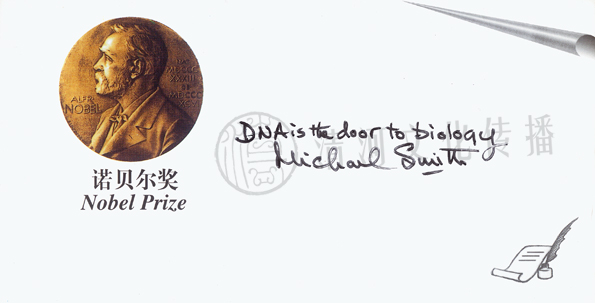 ALFR.
NOBEL
诺贝尔奖
Nobel Prize
DNA is the door to biology
Michael Smith
传播